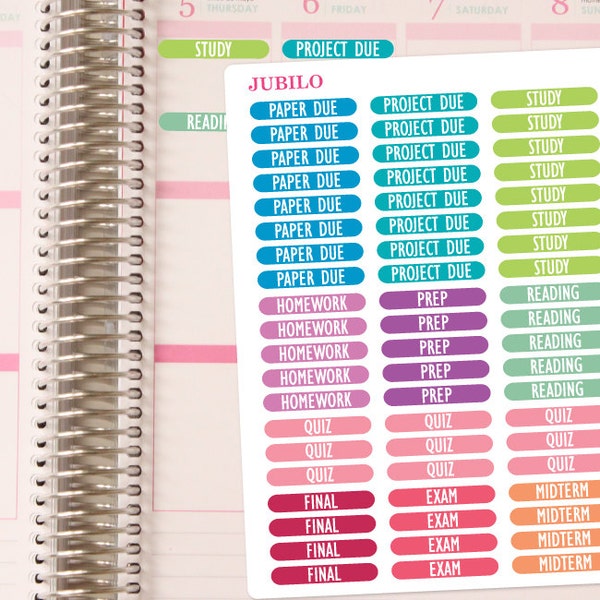 5 THURSDAY 6 FRIDAY 7 SATURDAY 8
STUDY PROJECT DUE
READING
JUBILO
PAPER DUE PROJECT DUE STUDY
PAPER DUE PROJECT DUE STUDY
PAPER DUE PROJECT DUE STUDY
PAPER DUE PROJECT DUE STUDY
PAPER DUE PROJECT DUE STUDY
PAPER DUE PROJECT DUE STUDY
PAPER DUE PROJECT DUE STUDY
PAPER DUE PROJECT DUE STUDY
HOMEWORK PREP READING
HOMEWORK PREP READING
HOMEWORK PREP READING
HOMEWORK PREP READING
HOMEWORK PREP READING
QUIZ QUIZ QUIZ
QUIZ QUIZ QUIZ
QUIZ QUIZ QUIZ
FINAL EXAM MIDTERM
FINAL EXAM MIDTERM
FINAL EXAM MIDTERM
FINAL EXAM MIDTERM